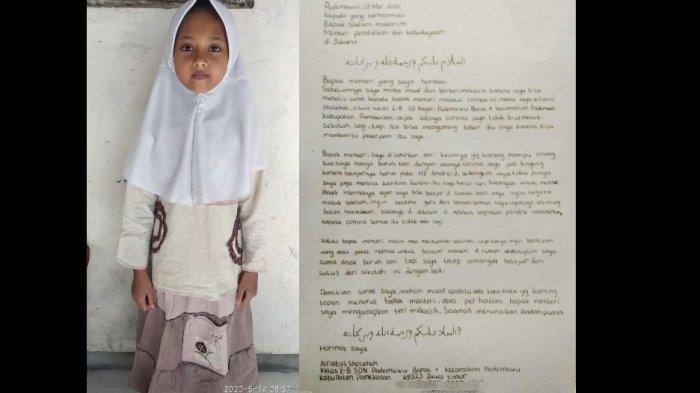 Pademawu, 13 Mei 2020
Kepada yang terhormat
Bapak Nadiem makarim
Menteri pendidikan dan kebudayaan
di Jakarta
السلام عليكم ورحمة الله وبركاته
Bapak menteri yang saya hormati
Sebelumnya saya minta maaf dan berterimakasih karena saya bisa
menulis surat kepada bapak menteri melalui lomba ini. nama saya Alfiatus
Sholehah, siswi kelas V-B SD Negeri Pademawu Barat 1 kecamatan Pademawu
Kabupaten Pamekasan, sejak adanya corona saya tidak bisa masuk
sekolah lagi, tapi itu bisa mengurangi beban ibu saya karena bisa
membantu pekerjaan ibu saya.
Bapak menteri, saya di lahirkan dari keluarga yg kurang mampu orang
tua saya hanya buruh tani, dengan adanya corona saya jadi bingung
karena belajarnya harus pake HP Android, sedangkan saya tidak punya.
Saya juga merasa kasihan karena ibu saya harus cari pinjaman untuk membeli
Paket internetnya agar saya bisa belajar di rumah. Saya ingin segera
masuk sekolah, ingin ketemu guru dan teman-teman saya apalagi sekarang
bulan romadhan. biasanya di sekolah di adakan kegiatan pondok romadhan,
karena corona semua itu tidak ada lagi.
Kalau bapak menteri masih mau meliburkan sekolah, saya hanya ingin bantuan
uang atau paket internet untuk belajar mandiri di rumah walaupun saya
cuma anak buruh tani tapi saya tetap semangat belajar dan
lulus dari sekolah ini dengan baik.
Demikian surat saya, mohon maaf apabila ada kata-kata yg kurang
sopan menurut bapak menteri. atas perhatian bapak menteri
saya mengucapkan teri makasih. Selamat menunaikan ibadah puasa
والسلام عليكم ورحمة الله وبركاته
Hormat Saya
Alfiatus Sholehah
Kelas V-B SDN Pademawu Barat 1 kecamatan Pademawu
Kabupaten Pamekasan 69323 Jawa timur
2020-5-14 08:57